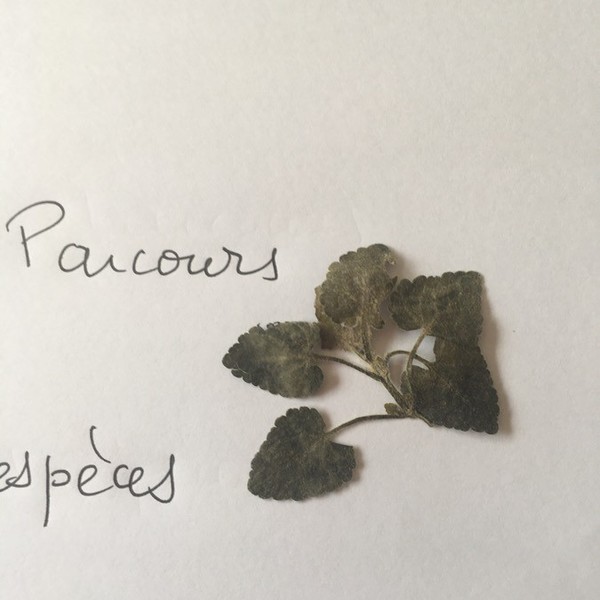 Parcours
espèces